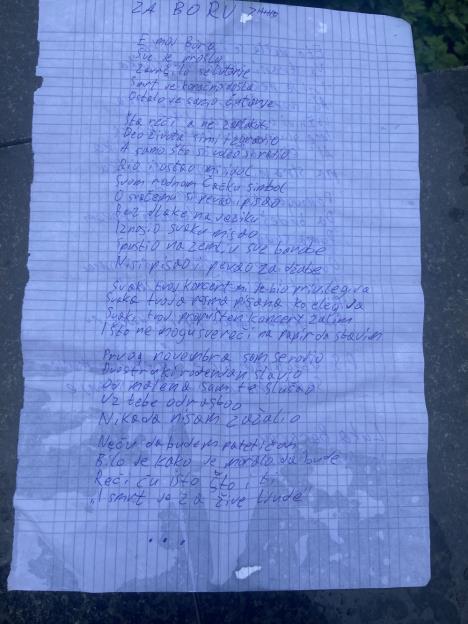 ZA BORU
E moj Boro
Sve je prošlo
Završilo se
Smrt je konačno došla
Ostalo je samo ćutanje
Šta reći a ne zaplakati
Deo života si mi izgradio
A samo što si video si radio
Bio i ostao mi idol
Svom rodnom Čačku simbol
O svačemu si pevao i pisao
Bez dlake na jeziku
Iznosio svaku misao
Pustio na zemlju sve barabe
Nisi pisao i pevao za džabe
Svaki tvoj koncert mi je bio privilegija
Svaka tvoja pesma pisana ko elegija
Svaki tvoj propušten koncert žalim
I što ne mogu sve reči na papir da stavim
Prvog novembra sam se rodio
Dvostruki rođendan slavio
Od malena sam te slušao
Uz tebe odrastao
Nikada nisam zažalio
Neću da budem patetičan
Bilo je kako je moralo da bude
Reći ću isto što i ti
"I smrt je za žive ljude"
...